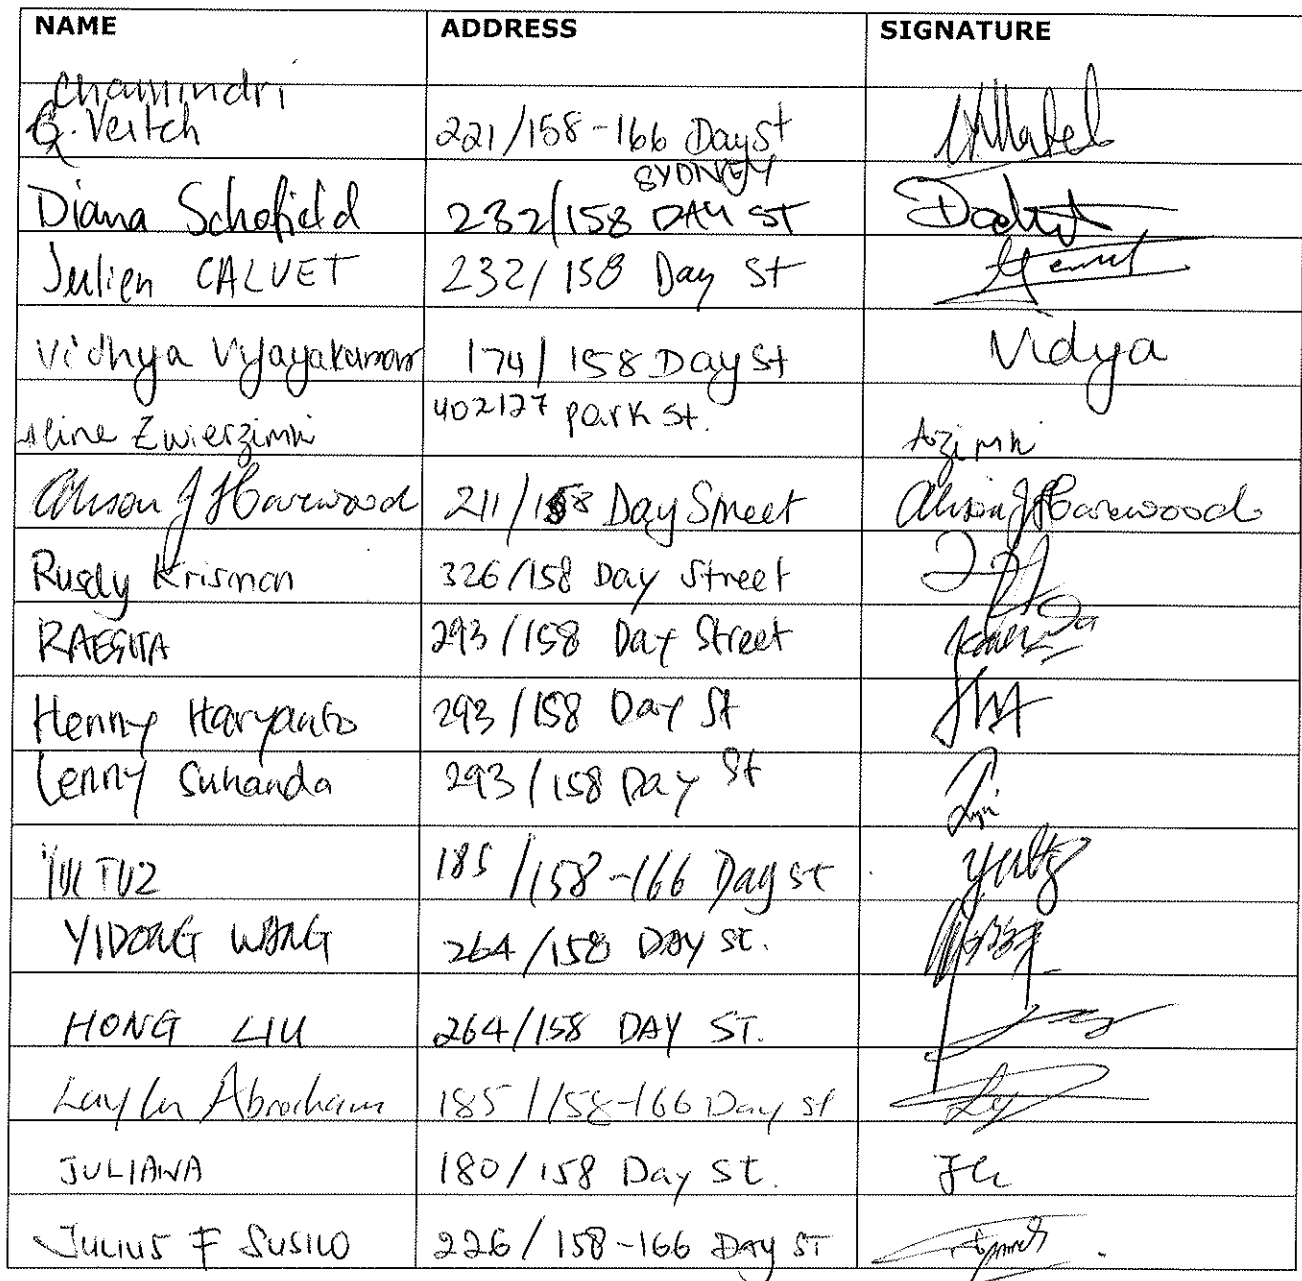 NAME ADDRESS SIGNATURE
Chamindri
G. Veitch 221/158-166 Day St
SYDNEY
Diana Schofield 232/158 DAY ST
Julien CALVET 232/158 Day St
Vidhya Vijayakumar 174/158 Day St Vidya
Aline Zwierzinki 402127 park st. Azimki
Alison J Harwood 211/158 Day Street Alison J Harwood
Rusdy Krisman 326/158 Day Street
293/158 Day Street
Henny Haryanto 293/158 Day St
Lenny Suhanda 293/158 Day St
185/158-166 Day st
YIDONG WANG 264/158 DAY ST.
HONG LIU 264/158 DAY ST.
Layla Abraham 185/158-166 Day st
JULIANA 180/158 Day St.
JULIUS F SUSILO 226/158-166 Day ST